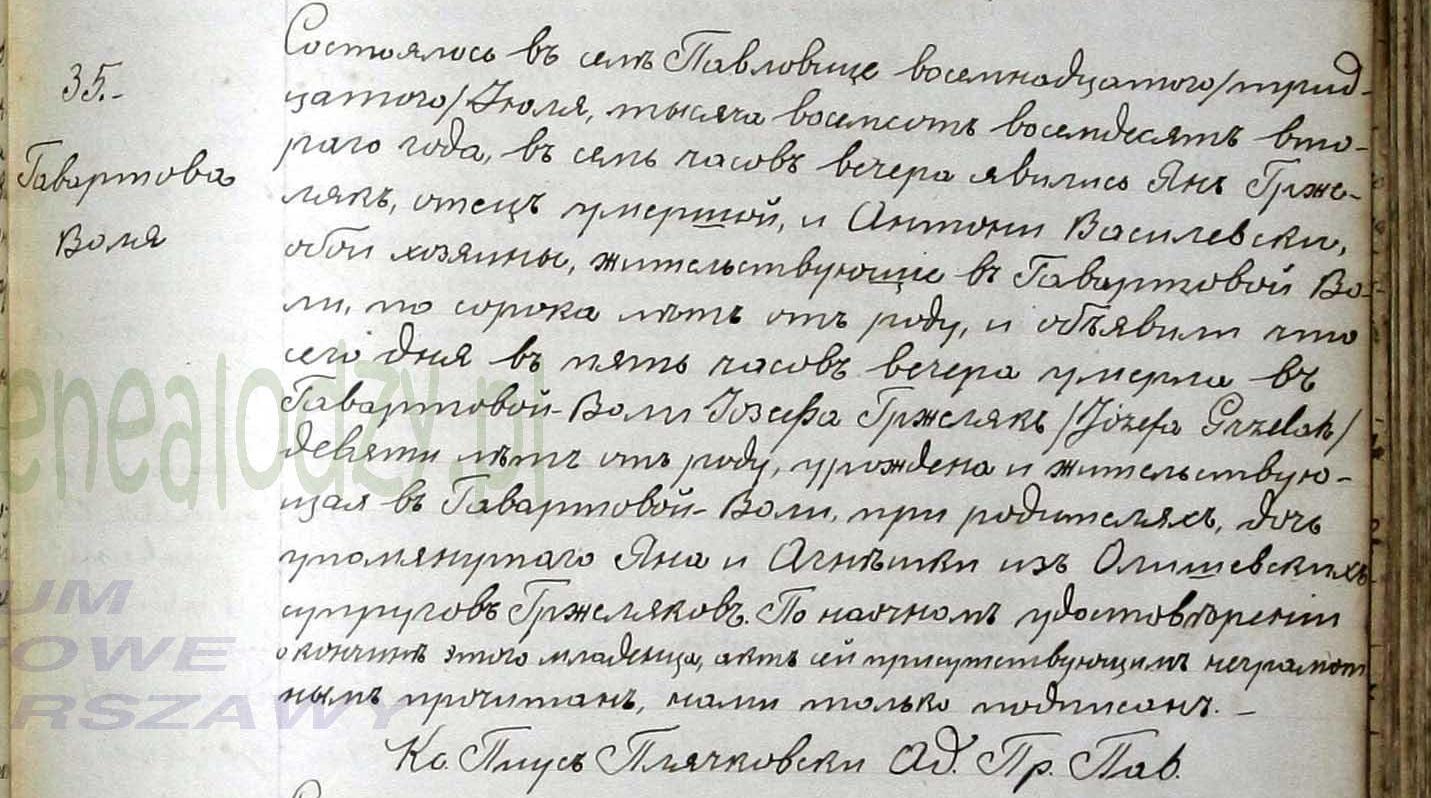 35.-
Гавартова
Воля
Состоялось въ селѣ Павловице восемнадцатого/трид-
цатого/Июля, тысяча восемсотъ восемдесятъ вто-
раго года, въ семь часовъ вечера явились Янъ Грже-
лякъ, отецъ умершой, и Антони Василевски,
обои хозяины, жительствующіе въ Гавартовой Во-
ли, по сорока лѣтъ отъ роду, и объявили что
сего дня въ пять часовъ вечера умерла въ
Гавартовой-Воли Іозефа Гржелякъ /Józefa Grzelak/
девяти лѣтъ отъ роду, урождена и жительствую-
щая въ Гавартовой-Воли, при родителяхъ, дочь
упомянутаго Яна и Агнѣшки изъ Олишевскихъ
супруговъ Гржеляковъ. По наочномъ удостовѣреніи
о кончинѣ этого младенца, актъ сей присутствующимъ неграмот
нымъ прочитанъ, нами только подписанъ. -
Кс. Пиусъ Плячковски Ад. Пр. Пав.
enealodzy.pl
UM
OWE
RSZAWY